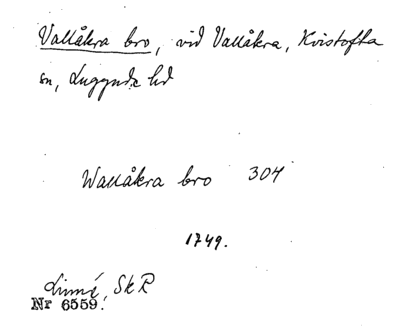 Vallåkra bro, vid Vallåkra, Kvistofta
sn, Luggude hd
Wallåkra bro 304
1749.
Linné, SkR
Nr 6559.